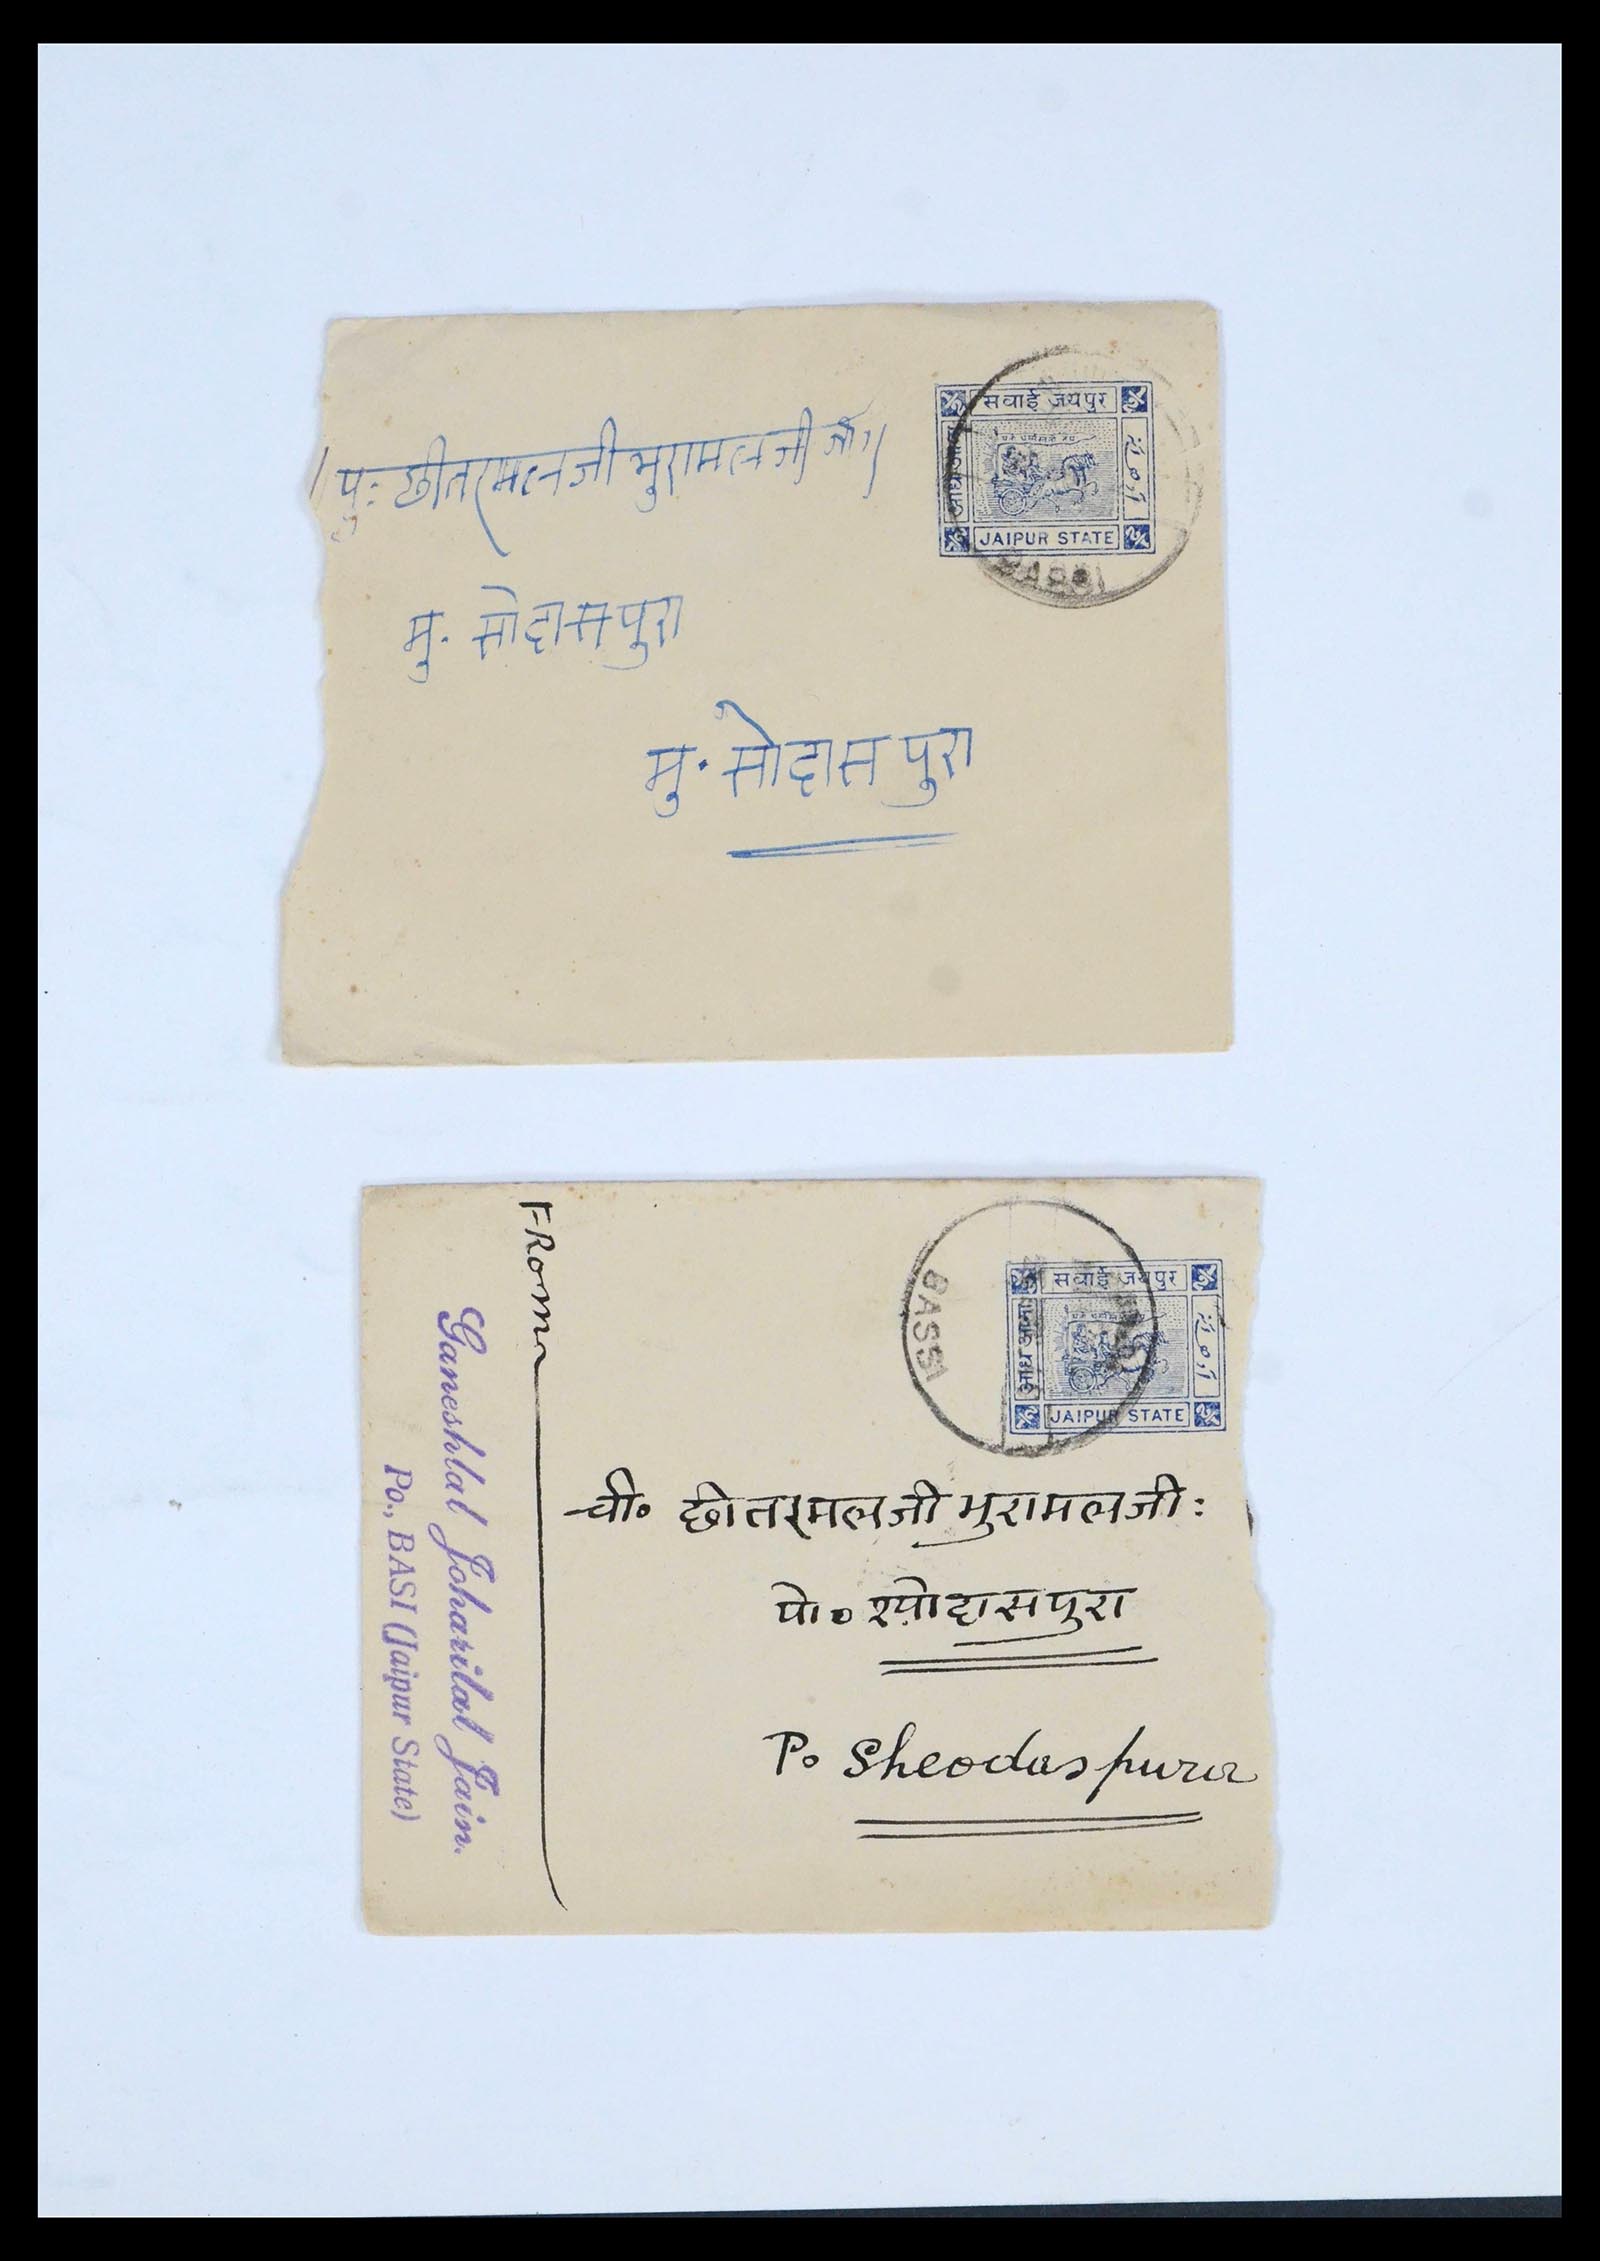 सवाई जयपुर
आध आना
JAIPUR STATE
छीतरमलजी भुरामलजी
मु. सोदासपुरा
मु. सोदासपुरा
BASSI
सवाई जयपुर
आध आना
JAIPUR STATE
BASSI
FRom
Ganeshlal Joharilal Jain.
Po., BASI (Jaipur State)
ची० छीतरमलजी भुरामलजी:
पो० श्योदासपुरा
Po Sheodaspura